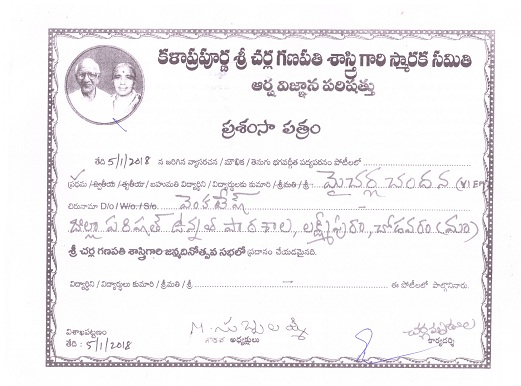 కళాప్రపూర్ణ శ్రీ చర్ల గణపతి శాస్త్రి గారి స్మారక సమితి
ఆర్ష విజ్ఞాన పరిషత్తు
ప్రశంసా పత్రం
తేది 5/1/2018 న జరిగిన వ్యాసరచన / మౌఖిక / తెలుగు భగవద్గీత పద్యపఠనం పోటీలలో
ప్రథమ / ద్వితీయ / తృతీయ / బహుమతి విద్యార్థిని / విద్యార్థులకు కుమారి / శ్రీమతి / శ్రీ మైచర్ల చందన
చిరునామా D/o / W/o. / S/o. వెంకటేష్
జిల్లా పరిషత్ ఉన్నత పాఠశాల, లక్ష్మీపురం, చోడవరం (మం)
శ్రీ చర్ల గణపతి శాస్త్రిగారి జన్మదినోత్సవ సభలో ప్రదానం చేయడమైనది.
విద్యార్థిని / విద్యార్థులు కుమారి / శ్రీమతి / శ్రీ ఈ పోటీలలో పాల్గొనినారు.
M. సుబ్బలక్ష్మి
విశాఖపట్టణం
అధ్యక్షులు కార్యదర్శి
తేది : 5/1/2018